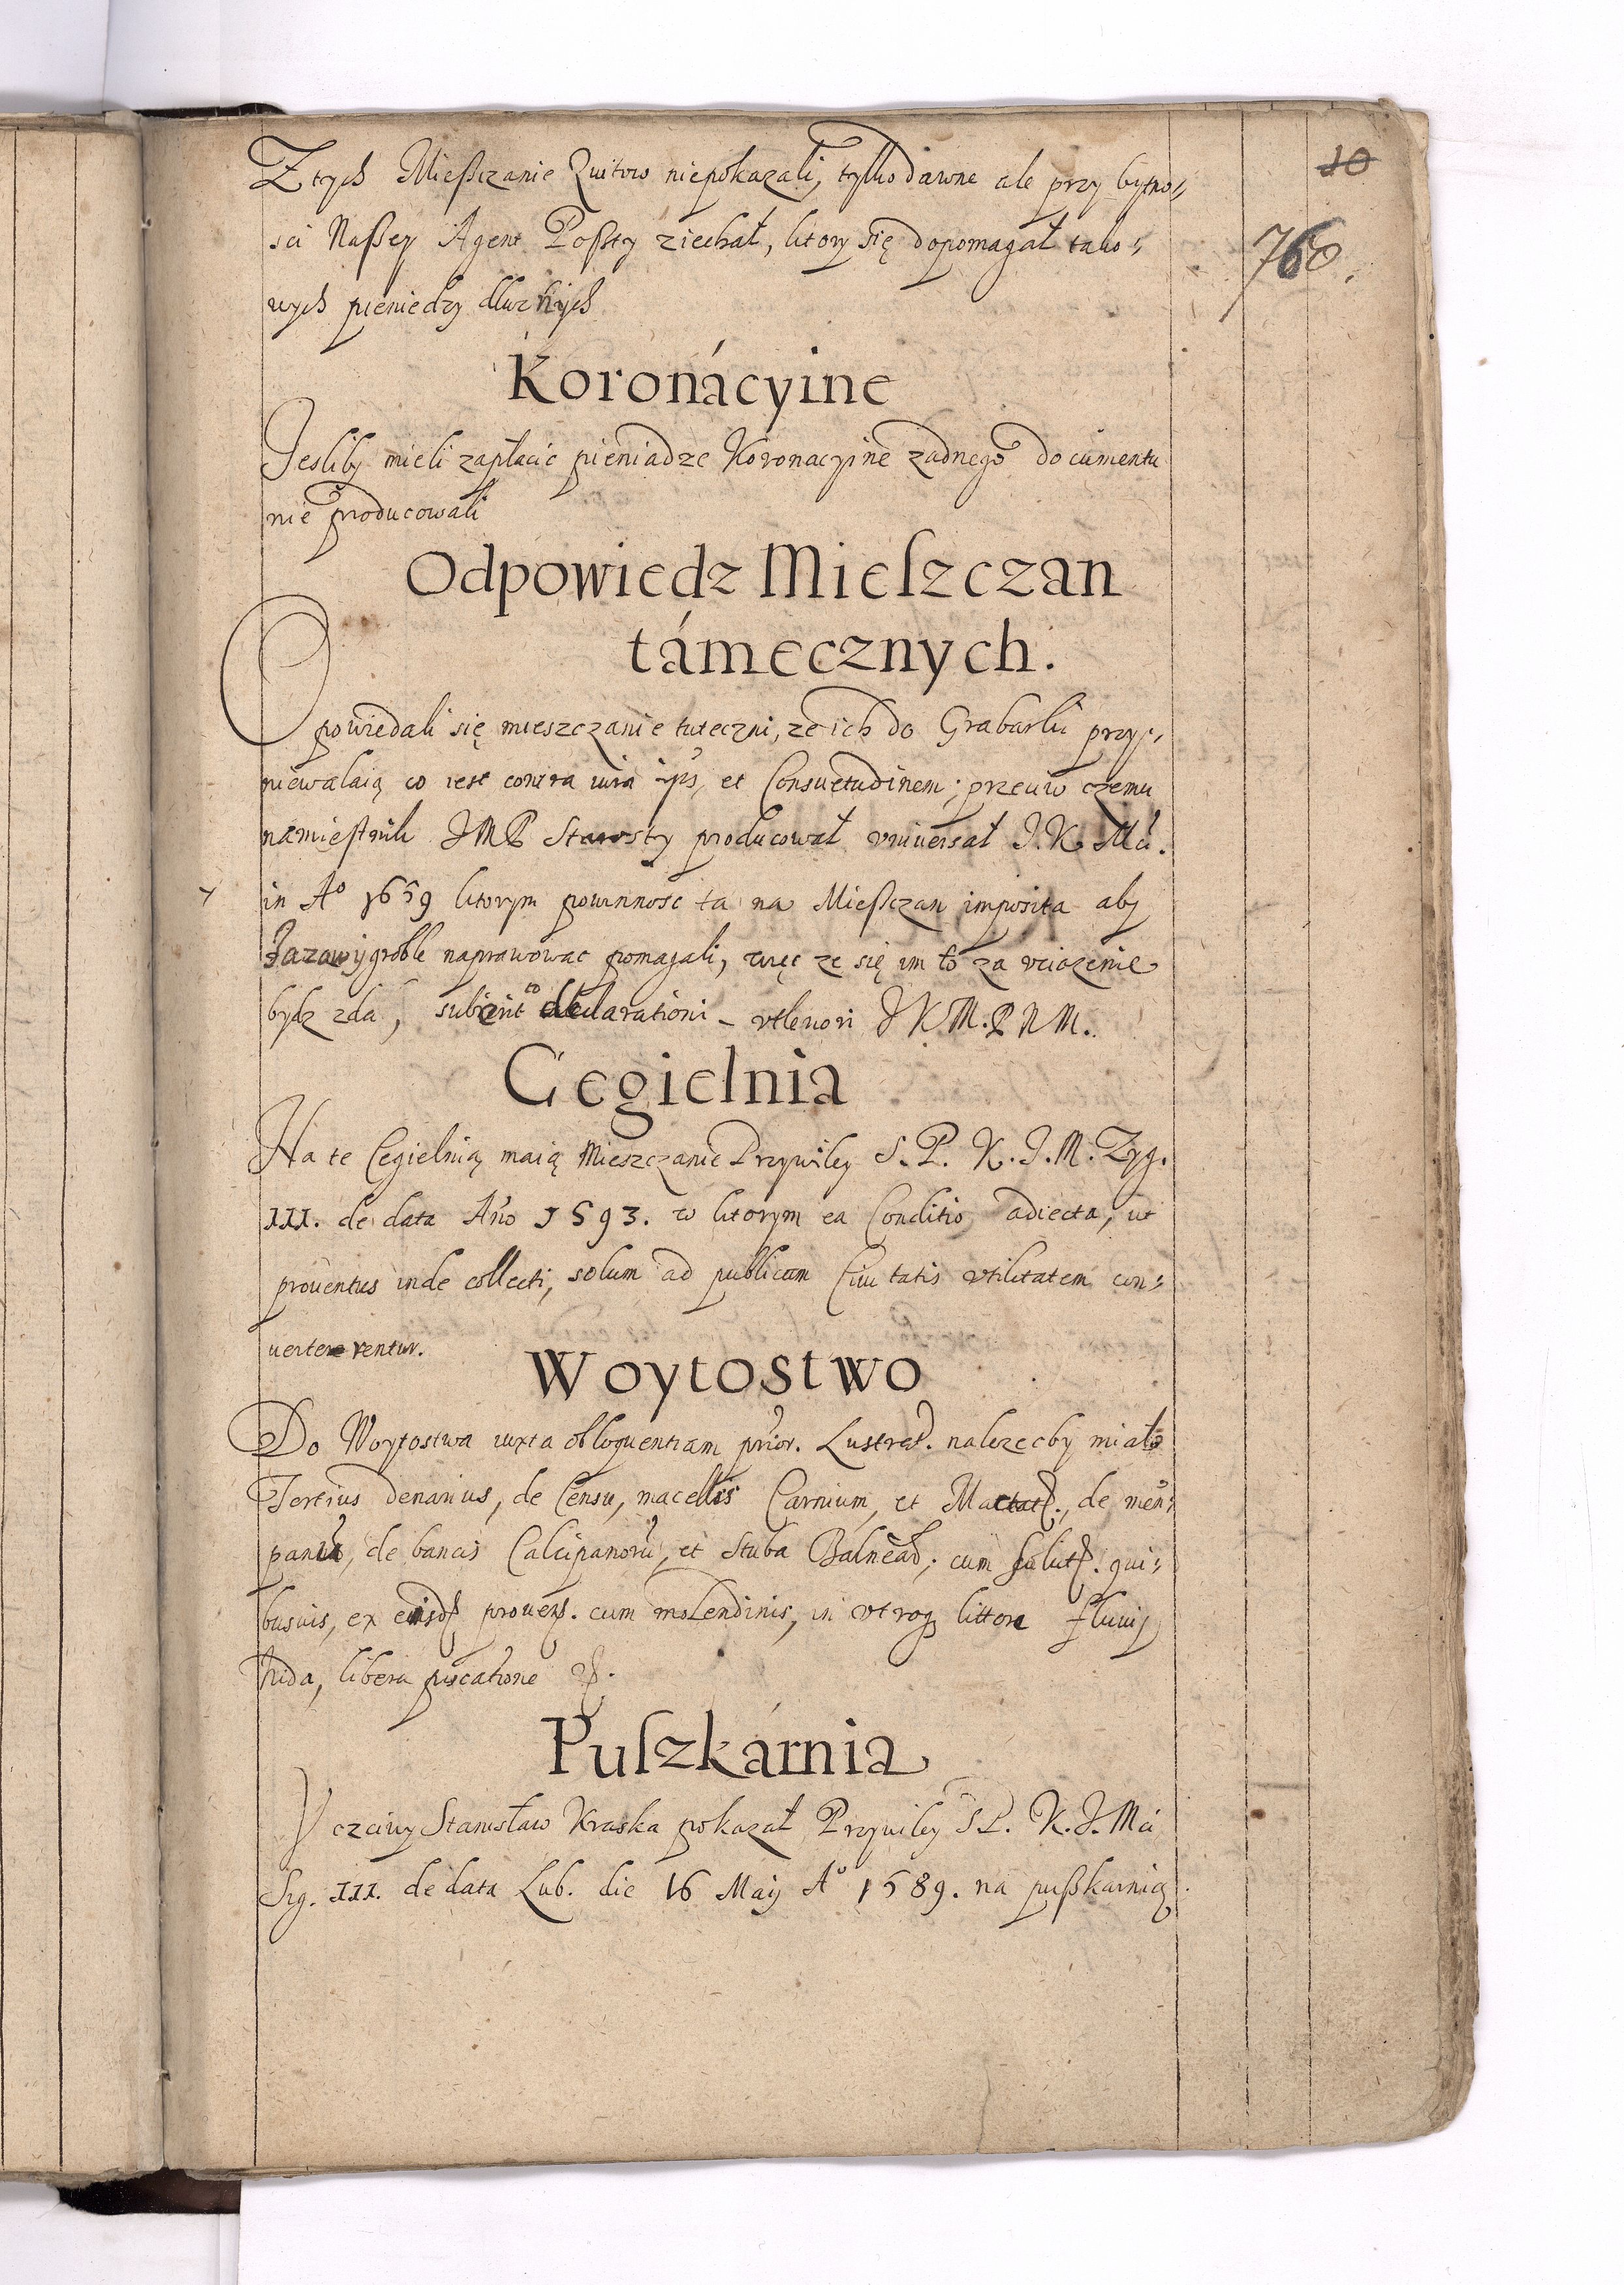 10
760.
Z tych Mießczanie Quitow niepokazali, tylko dawne ale przy bytno„
sci Naßey Agent Poßty ziechał, ktory się dopomagał tako„
wych pieniedzy dłuznych
Koronácyine
Jesliby mieli zapłacic pieniadze Koronacyine zadnego documentu
nie producowali
Odpowiedz Mieszczan
támecznych.
Opowiedali się mieszczanie tuteczni, ze ich do Grabarki przy„
niewalaią co iest contra iura ips, et Consuetudinem; przeciw czemu
namiestnik JMP Starosty producował vniuersał J. K. Mći.
in Aº 1659 ktorym powinnosc ta na Mießczan imposita aby
Jazowy groble naprawowac pomagali, więc ze się im to za vciązenie
bydz zda, subsint declarationi – vlteriori J K M. P N M.
Cegielnia
Na te Cegielnią maią Mieszczanie Przywiley S. P. K. J. M. Zyg.
III. de data Año 1593. w ktorym ea Conditio adiecta, ut
prouentus inde collecti, solum ad publicam Ciuitatis vtilitatem con„
uerterentur.
Woytostwo
Do Woytostwa iuxta obloquentiam prior. Lustrat. nalezecby miało
Tertius denarius, de Censu, macellis Carnium, et Mactat., de men„
panum, de bancis Calcipanorũ, et Stuba Balnead; cum salut. qui„
busuis, ex eiisd prouent. cum molendinis, in vtroq littore fluuij
Nida, libera piscatione etc.
Puszkárnia
Vczciwy Stanisław Kraska pokazał Przywiley S P. K. J. Mći
Sig. III. de data Lub. die 16 Maij Aº 1589. na pußkarnią.